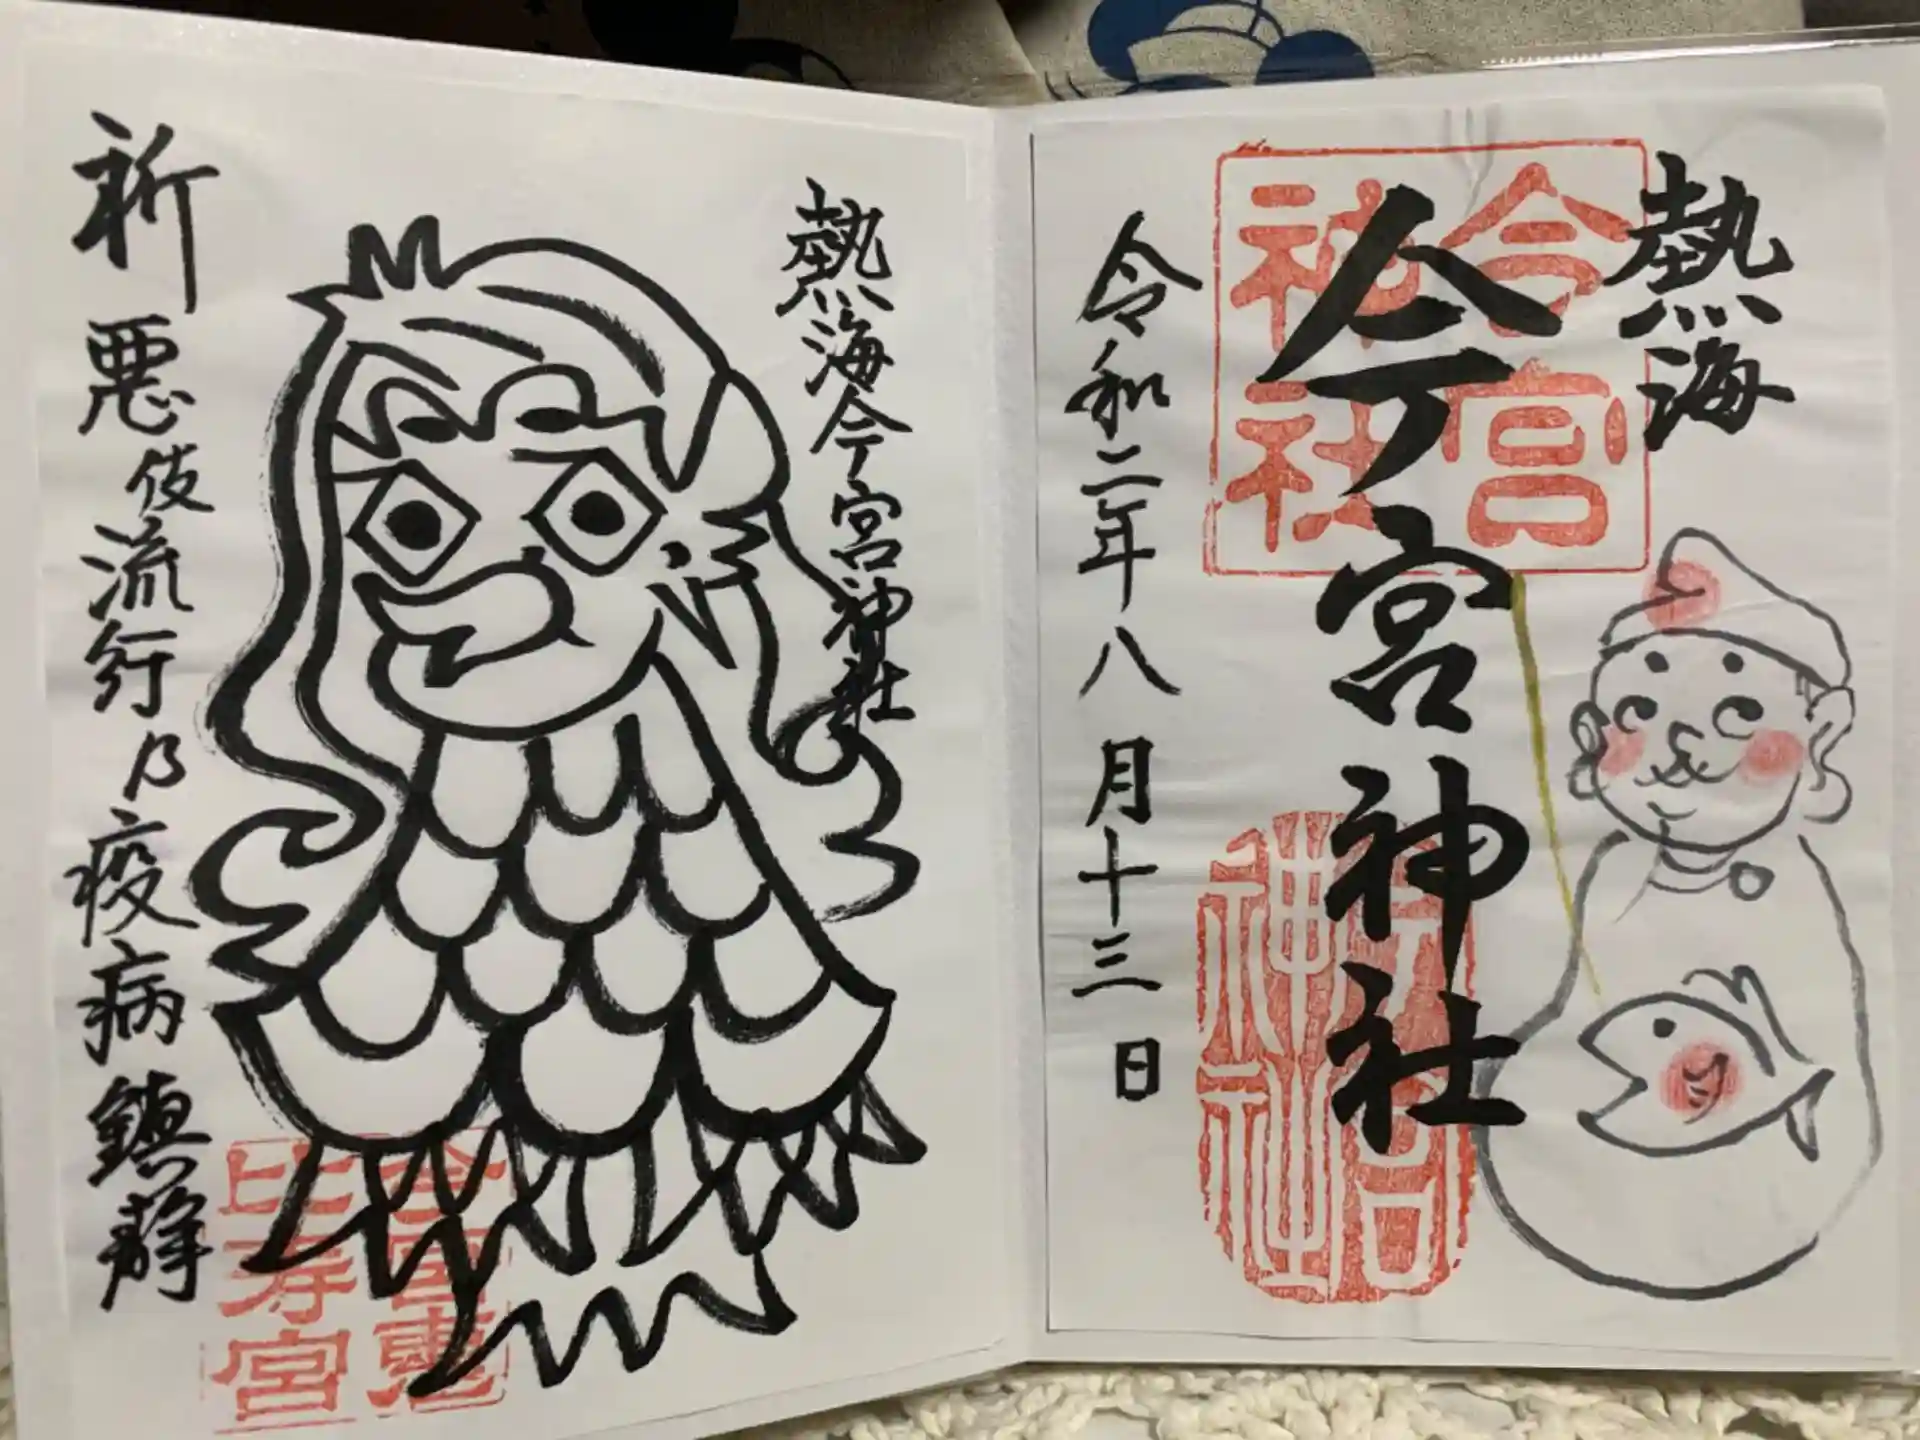 熱海
今宮
神社
今宮神社
今宮
神社
令和二年八月十三日
熱海今宮神社
祈 悪伎流行乃疫病鎮静
今宮恵
比寿宮